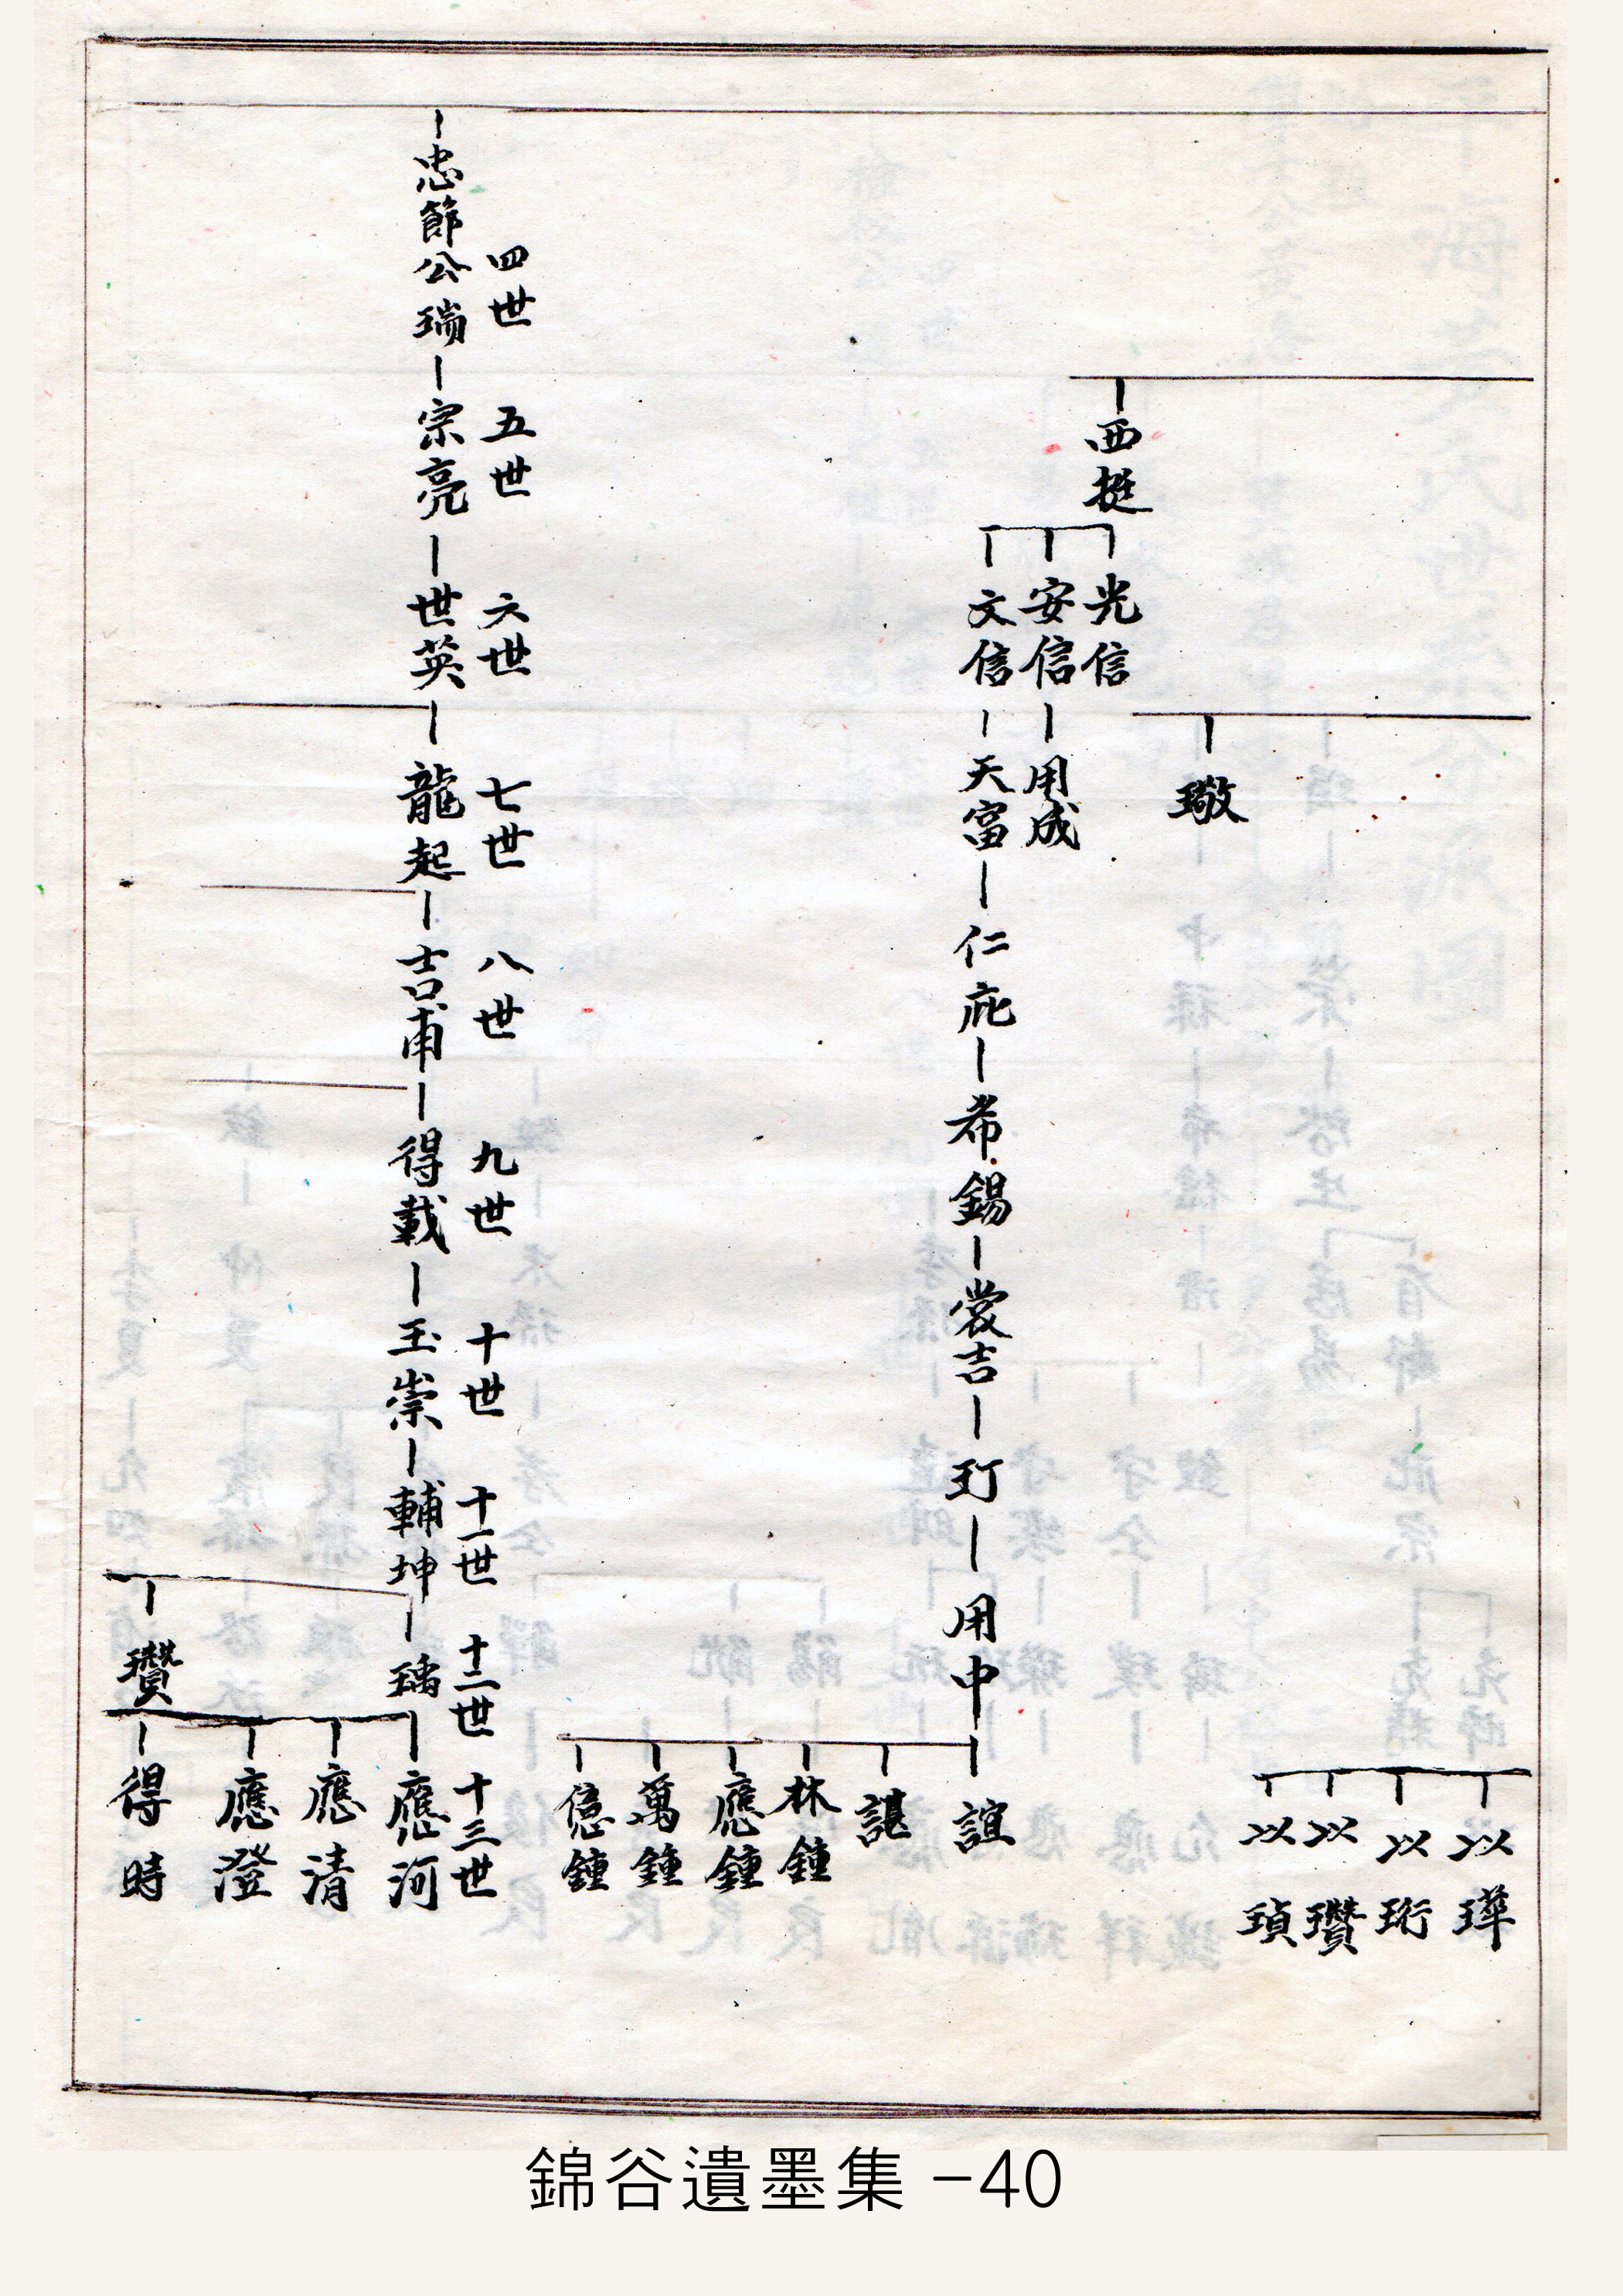 西挺
光信
安信
用成
文信
天富
仁庇
希錫
裳吉
玎
用中
璥
以瑋
以珩
以瓚
以瑱
誼
諶
林鍾
應鍾
萬鍾
億鍾
四世
五世
六世
七世
八世
九世
十世
十一世
十二世
十三世
忠節公瑞
宗亮
世英
龍起
吉甫
得載
玉崇
輔坤
瑀
應河
應清
應澄
瓚
得時
錦谷遺墨集 -40